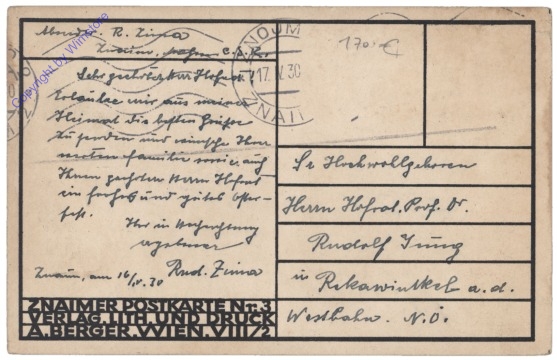 Absender: R. Zima
Znaim, Mähren Č.S.R.
Sehr geehrter Herr Hofrat!
Erlaube mir aus meiner
Heimat die besten Grüße
zu senden und wünsche Ihrer
werten Familie sowie auch
Ihnen geehrter Herr Hofrat
ein frohes und gutes Oster-
fest.
Ihr in Hochachtung
ergebener
Rud. Zima
Znaim, am 16/IV. 30
ZNAIMER POSTKARTE Nr: 3
VERLAG, LITH. UND DRUCK
A. BERGER, WIEN, VIII/2
ZNOJM
17. IV 30
ZNAI
170.-€
Sr Hochwohlgeboren
Herrn Hofrat. Prof. Dr.
Rudolf Jung
in Rekawinkel a. d.
Westbahn. N.Ö.
Copyright by Winstore